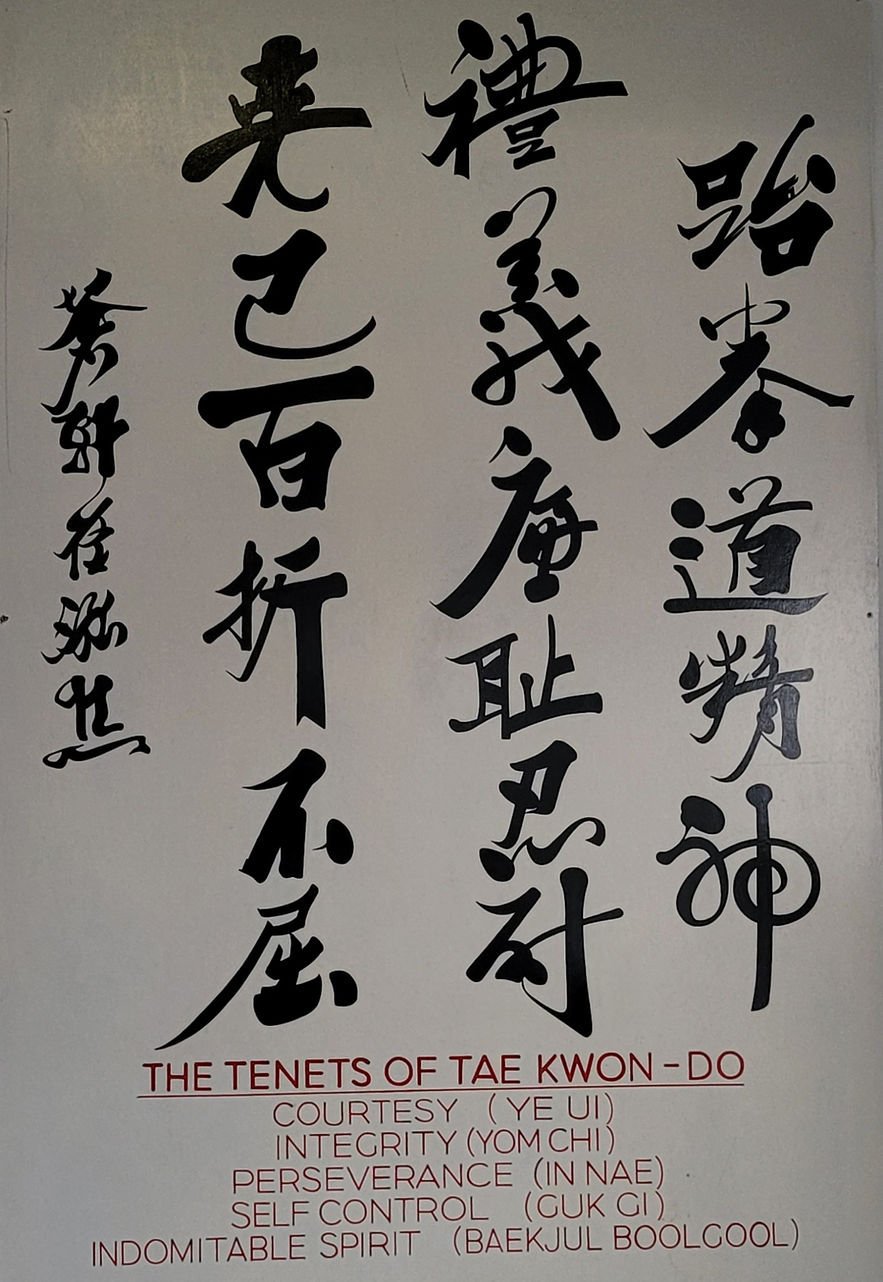 跆拳道精神
禮義廉耻忍耐
克己百折不屈
蒼軒崔泓熙
THE TENETS OF TAE KWON-DO
COURTESY (YE UI)
INTEGRITY (YOM CHI)
PERSEVERANCE (IN NAE)
SELF CONTROL (GUK GI)
INDOMITABLE SPIRIT (BAEKJUL BOOLGOOL)